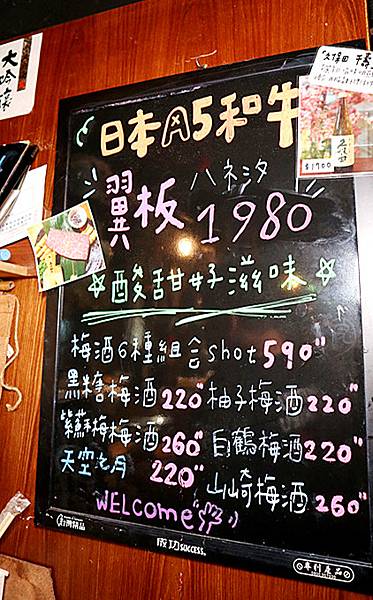 大吟釀
$1900
日本A5和牛
翼板 ハネシタ 1980
☆酸甜好滋味☆
梅酒6種組合shot 590"
黑糖梅酒220" 柚子梅酒220"
紫蘇梅梅酒260" 白鶴梅酒220"
天空之月 220" 山崎梅酒260"
WELCOME
成功 SUCCESS.
專利產品